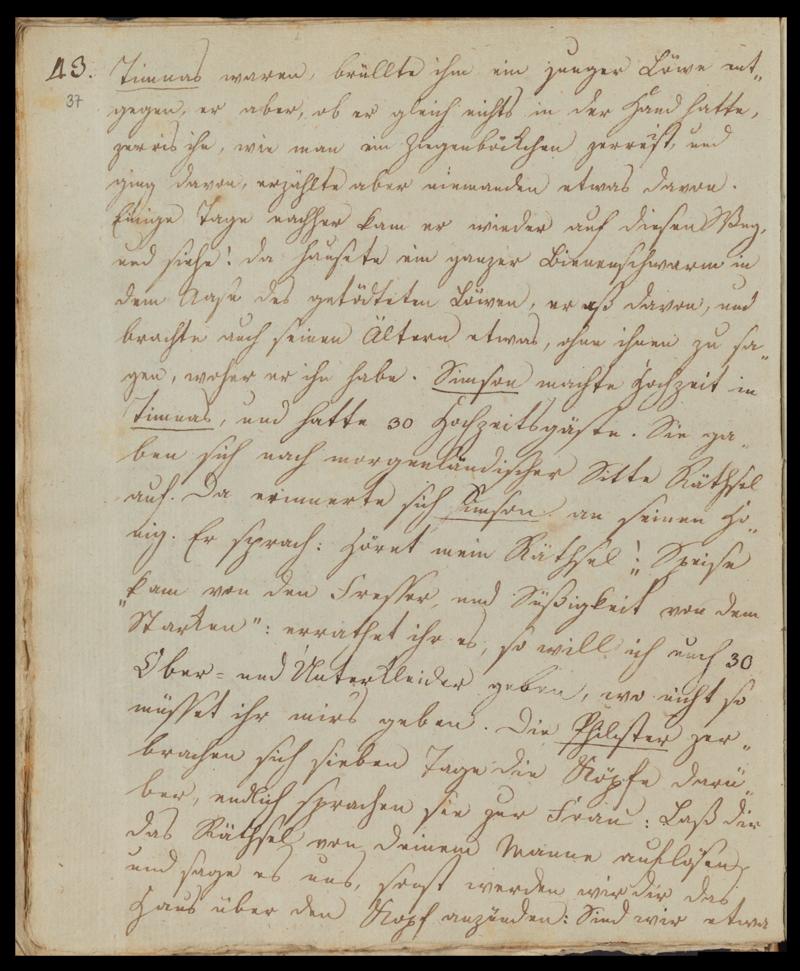 43. Timnas waren, brüllte ihm ein junger Löwe ent„
37
gegen, er aber, ob er gleich nichts in der Hand hatte,
zerris ihn, wie man ein Ziegenböckchen zerreist, und
ging davon, erzählte aber niemanden etwas davon.
Einige Tage nachher kam er wieder auf diesen Weg,
und siehe! da hausete ein ganzer Bienenschwarm in
dem Aase des getödteten Löwen, er aß davon, und
brachte auch seinen Ältern etwas, ohne ihnen zu sa„
gen, woher er ihn habe. Simson machte Hochzeit in
Timnas, und hatte 30 Hochzeitsgäste. Sie ga„
ben sich nach morgenländischer Sitte Räthsel
auf. Da erinnerte sich Simson an seinen Ho„
nig. Er sprach: Höret mein Räthsel!: „Speise
„kam von den Fresser, und Süßigkeit von dem
Starken": errathet ihr es, so will ich euch 30
Ober= und Unterkleider geben, wo nicht so
müsset ihr mirs geben. Die Philister zer„
brachen sich sieben Tage die Köpfe darü„
ber, endlich sprachen sie zur Frau: Laß dir
das Räthsel von deinem Manne auflösen,
und sage es uns, sonst werden wir dir das
Haus über den Kopf anzünden: Sind wir etwa